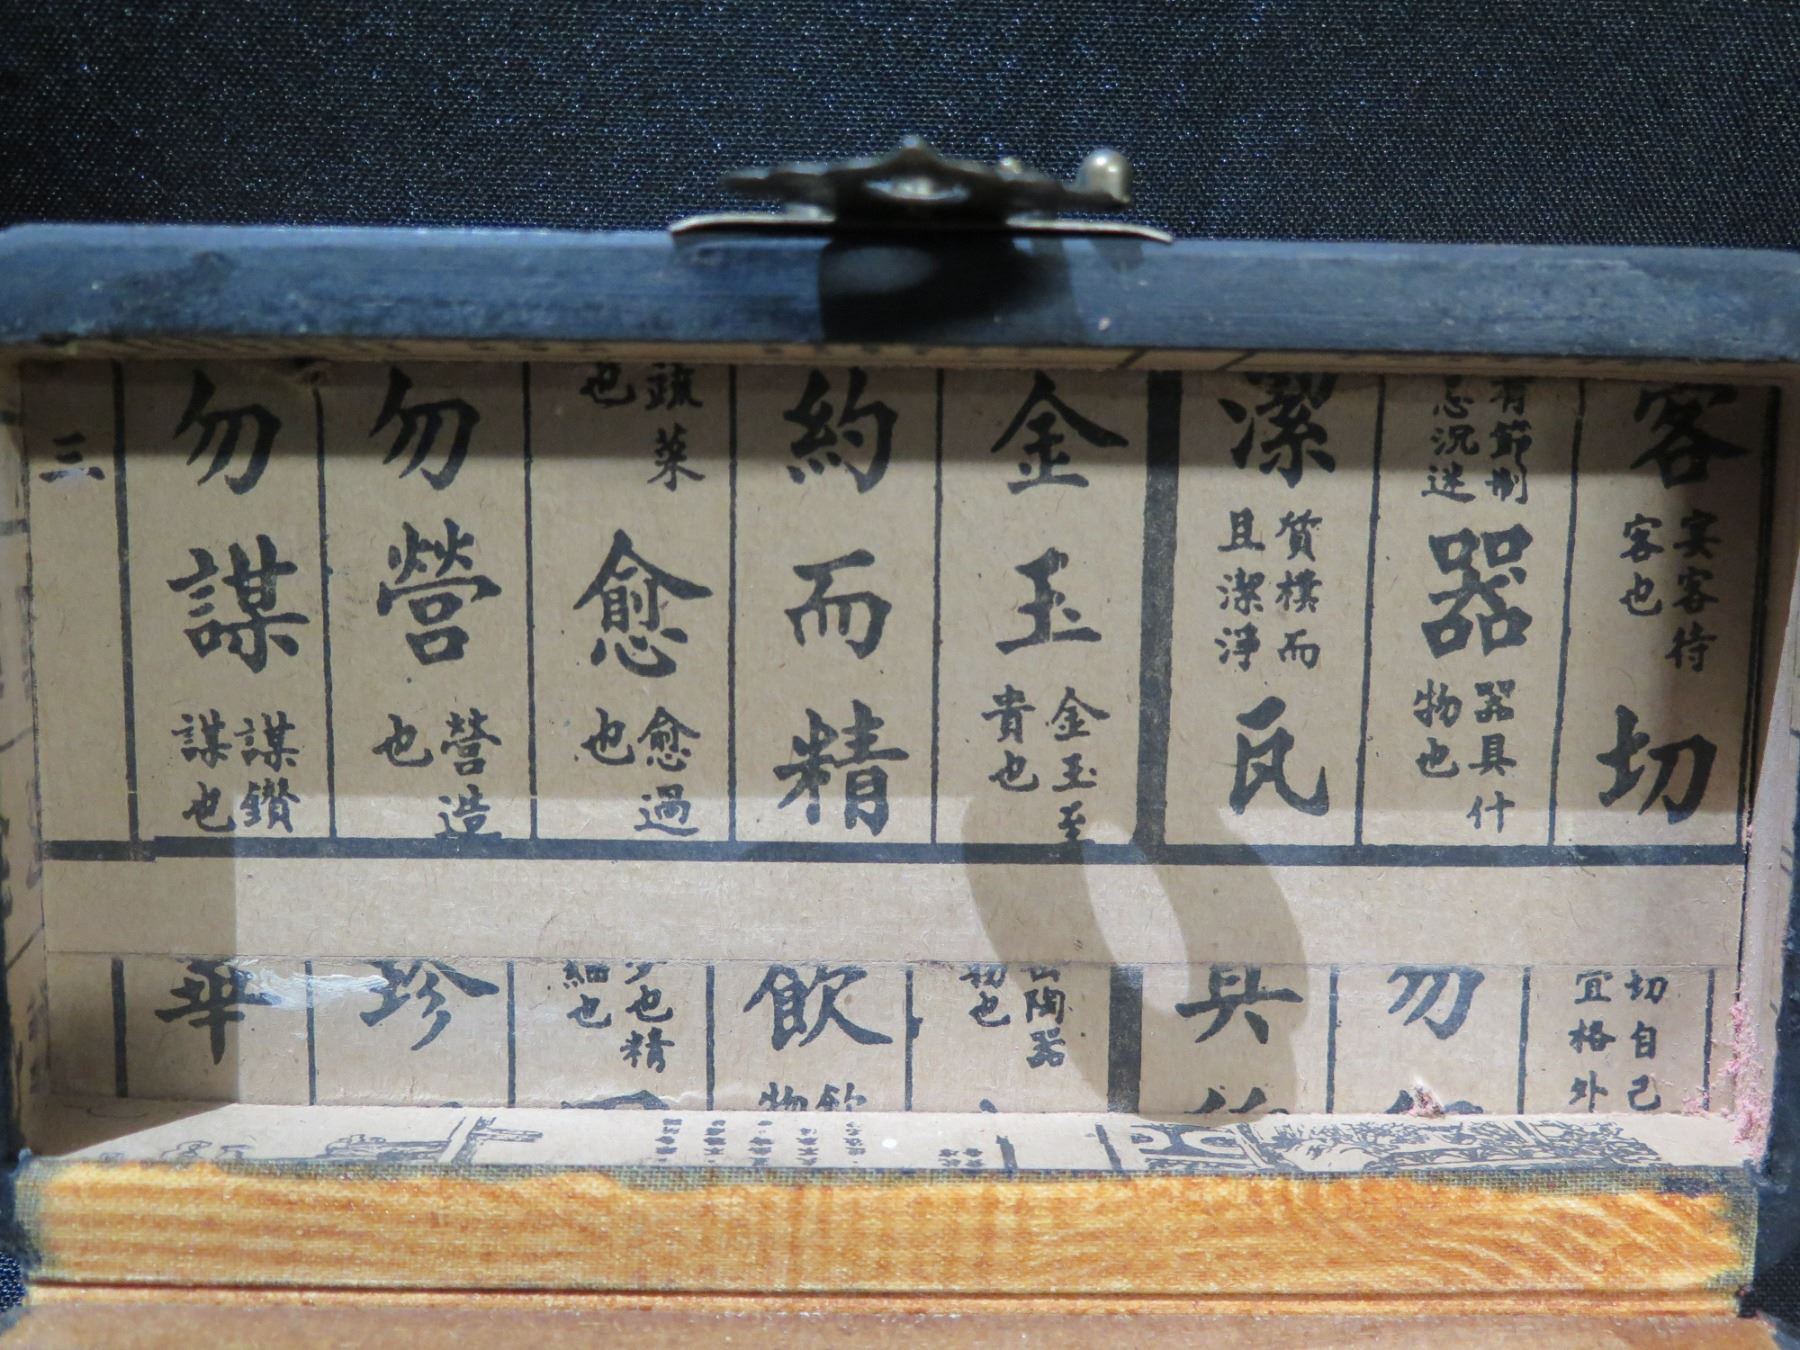 客
宾客待
客也
切
有節制
忌沉迷
器
器具什
物也
潔
質樸而
且潔淨
瓦
金玉
金玉至
貴也
約而精
蔬菜
也
愈
愈過
也
勿營
營造
也
勿謀
謀鑽
謀也
三
切自己
宜格外
勿
具
陶器
物也
飲
飲
物
也精
細也
珍
華